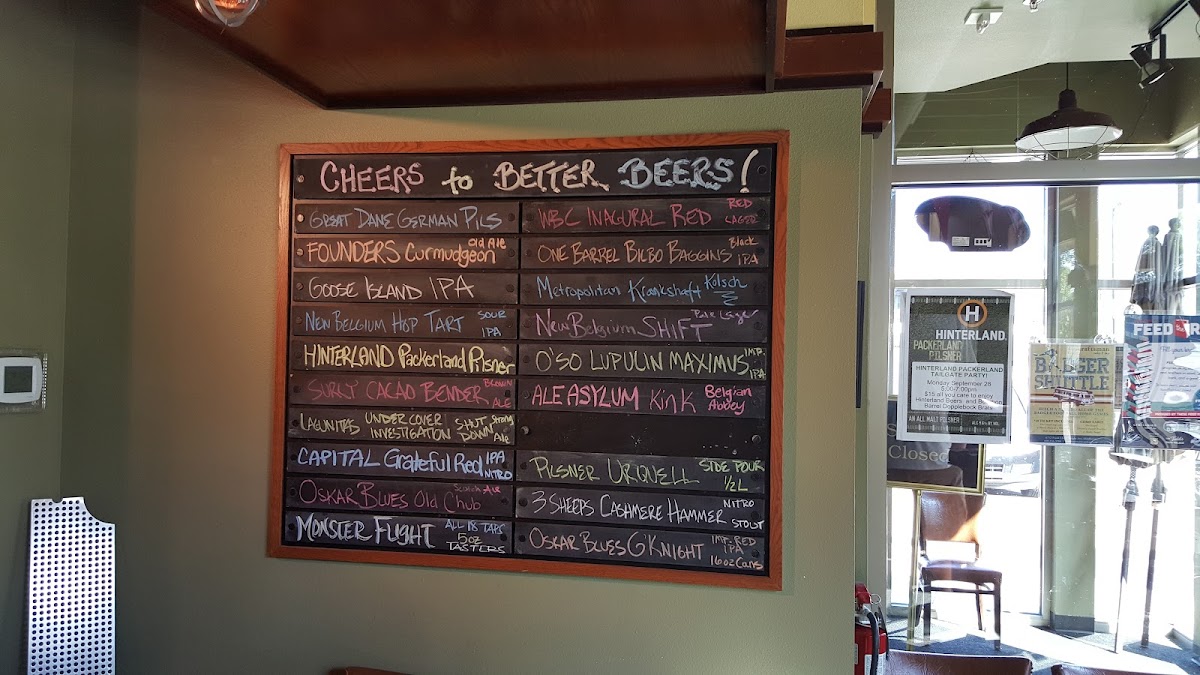 CHEERS to BETTER BEERS!
GREAT DANE GERMAN PILS
FOUNDERS Curmudgeon Old Ale
GOOSE ISLAND IPA
NEW BELGIUM HOP TART SOUR IPA
HINTERLAND Packerland Pilsner
SURLY CACAO BENDER BROWN ALE
LAGUNITAS UNDERCOVER INVESTIGATION SHUT DOWN Strong Ale
CAPITAL Grateful Red IPA NITRO
OSKAR BLUES Old Chub Scotch Ale
MONSTER FLIGHT ALL 18 TAPS 5oz TASTERS
WBC INAGURAL RED RED LAGER
ONE BARREL BILBO BAGGINS Black IPA
Metropolitan Krankshaft Kölsch
New Belgium SHIFT Pale Lager
O'SO LUPULIN MAXIMUS IMP. IPA
ALE ASYLUM KinK Belgian Abbey
PILSNER URQUELL SIDE POUR 1/2 L
3 SHEEPS CASHMERE HAMMER NITRO STOUT
OSKAR BLUES G'KNIGHT IMP. RED IPA 16oz Cans
H
HINTERLAND.
PACKERLAND
PILSNER
HINTERLAND PACKERLAND
TAILGATE PARTY!
Monday September 28
5:00-7:00pm
$15 all you care to enjoy
Hinterland Beers and
Barrel Dopplebock Brats
AN ALL MALT PILSNER
BADGER
SHUTTLE
FEED
Closed